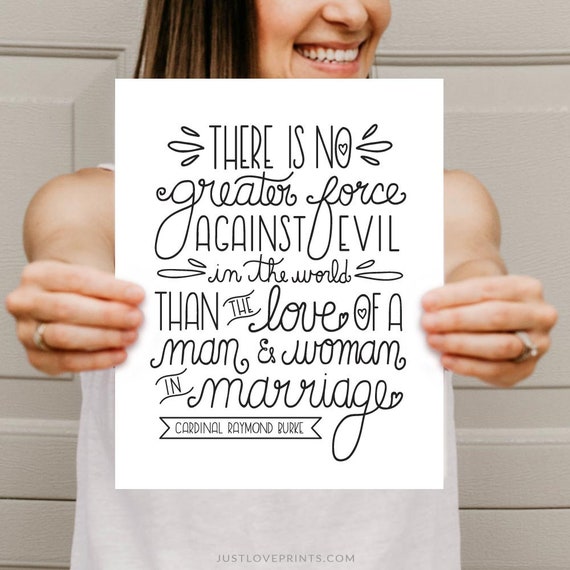 THERE IS NO
greater force
AGAINST EVIL
in the world
THAN THE love OF A
man & woman
IN marriage
CARDINAL RAYMOND BURKE
JUSTLOVEPRINTS.COM